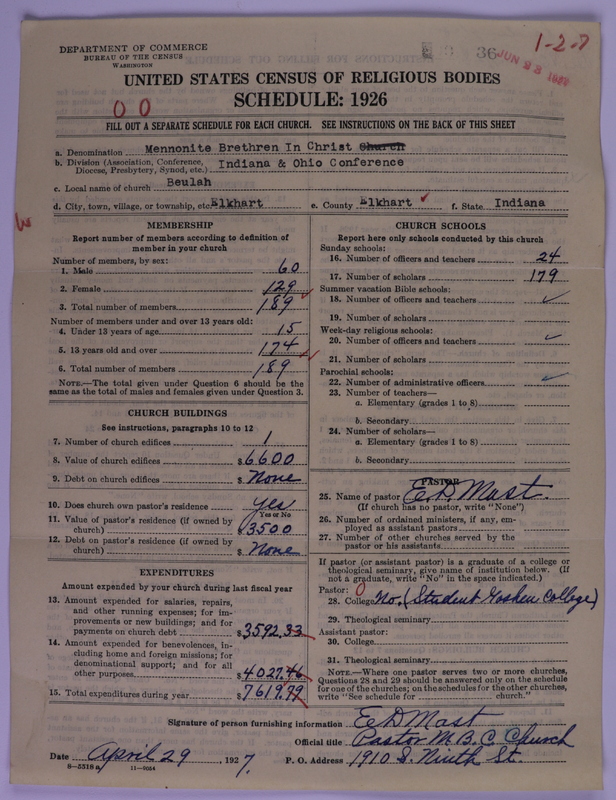 1-2-7
36
JUN 23 1927
DEPARTMENT OF COMMERCE
BUREAU OF THE CENSUS
WASHINGTON
UNITED STATES CENSUS OF RELIGIOUS BODIES
SCHEDULE: 1926
0 0
FILL OUT A SEPARATE SCHEDULE FOR EACH CHURCH. SEE INSTRUCTIONS ON THE BACK OF THIS SHEET
a. Denomination Mennonite Brethren In Christ Church
b. Division (Association, Conference, Diocese, Presbytery, Synod, etc.) Indiana & Ohio Conference
c. Local name of church Beulah
d. City, town, village, or township, etc. Elkhart e. County Elkhart f. State Indiana
MEMBERSHIP
Report number of members according to definition of
member in your church
Number of members, by sex:
1. Male 60
2. Female 129
3. Total number of members 189
Number of members under and over 13 years old:
4. Under 13 years of age 15
5. 13 years old and over 174
6. Total number of members 189
NOTE.—The total given under Question 6 should be the
same as the total of males and females given under Question 3.
CHURCH BUILDINGS
See instructions, paragraphs 10 to 12
7. Number of church edifices 1
8. Value of church edifices $6600
9. Debt on church edifices $None
10. Does church own pastor's residence Yes
Yes or No
11. Value of pastor's residence (if owned by
church) $3500
12. Debt on pastor's residence (if owned by
church) $None
EXPENDITURES
Amount expended by your church during last fiscal year
13. Amount expended for salaries, repairs,
and other running expenses; for im-
provements or new buildings; and for
payments on church debt $3592.33
14. Amount expended for benevolences, in-
cluding home and foreign missions; for
denominational support; and for all
other purposes $4027.46
15. Total expenditures during year $7619.79
CHURCH SCHOOLS
Report here only schools conducted by this church
Sunday schools:
16. Number of officers and teachers 24
17. Number of scholars 179
Summer vacation Bible schools:
18. Number of officers and teachers ✓
19. Number of scholars
Week-day religious schools:
20. Number of officers and teachers ✓
21. Number of scholars
Parochial schools:
22. Number of administrative officers ✓
23. Number of teachers—
a. Elementary (grades 1 to 8)
b. Secondary
24. Number of scholars—
a. Elementary (grades 1 to 8)
b. Secondary
PASTOR
25. Name of pastor E D Mast.
(If church has no pastor, write "None")
26. Number of ordained ministers, if any, em-
ployed as assistant pastors
27. Number of other churches served by the
pastor or his assistants
If pastor (or assistant pastor) is a graduate of a college or
theological seminary, give name of institution below. (If
not a graduate, write "No" in the space indicated.)
Pastor: 0
28. College No. (Student Goshen College)
29. Theological seminary
Assistant pastor:
30. College
31. Theological seminary
NOTE.—Where one pastor serves two or more churches,
Questions 28 and 29 should be answered only on the schedule
for one of the churches; on the schedules for the other churches,
write "See schedule for church."
Signature of person furnishing information E D Mast
Official title Pastor M. B. C. Church
Date April 29, 1927. P. O. Address 1910 S. Ninth St.
8-5518a 11-9054